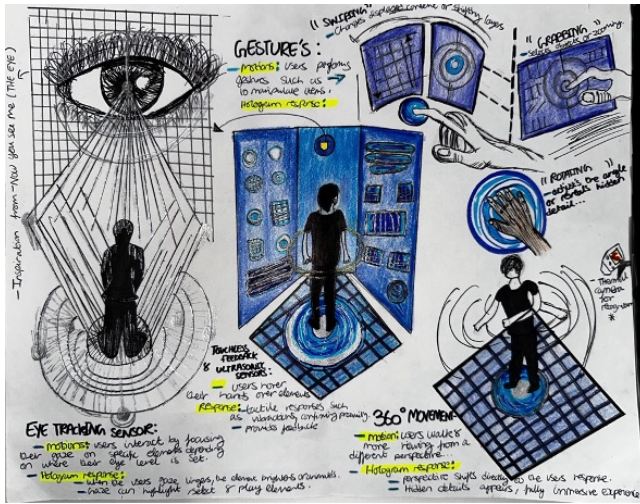 - Inspiration from - Now you see me (THE EYE)
GESTURE'S:
- Motions: users performing
gestures such as →
to manipulate items.
Hologram response:
"SWIPING"
- Changes displayed content or shifting layers
"GRABBING"
- Selects objects or zooming.
"ROTATING"
- adjusts the angle
or reveals hidden
detail...
- Thermal
camera
for
recognition
*
TOUCHLESS
FEEDBACK
& ULTRASONIC
SENSORS:
- users hover
their hands over elements
RESPONSE: tactile responses such
as vibrations, confirming proximity.
- provides feedback
EYE TRACKING SENSOR:
- Motions: users interact by focusing
their gaze on specific elements depending
on where their eye level is set.
- Hologram response:
- when the users gaze lingers, the element brightens or animates.
- Gaze can highlight select & play elements.
360° MOVEMENT-
- Motion: users walk &
move viewing from a
different perspective...
- Hologram response:
- perspective shifts directly to the users response.
- Hidden details appears, fully immersive